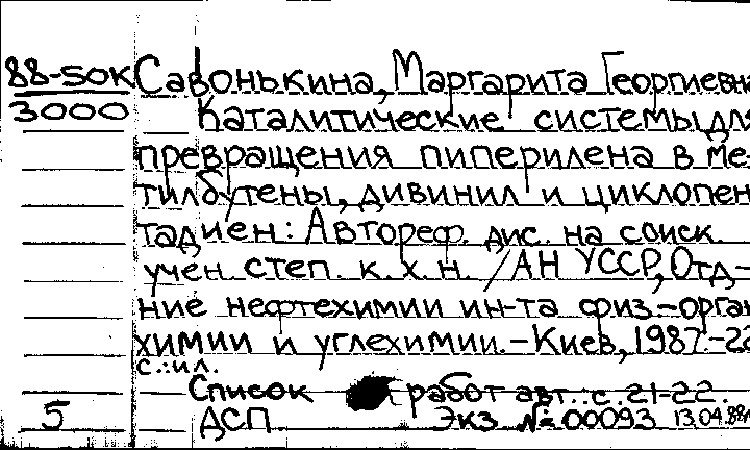 88-50К Савонькина, Маргарита Георгиевна
3000 Каталитические системы для
превращения пиперилена в ме-
тилбутены, дивинил и циклопен
тадиен: Автореф. дис. на соиск.
учен. степ. к. х. н. /АН УССР, Отд-
ние нефтехимии ин-та физ.-орган
химии и углехимии. -Киев, 1987.-22
с.:ил.
Список работ авт.: с. 21-22.
5 ДСП Экз №00093 13.04.88